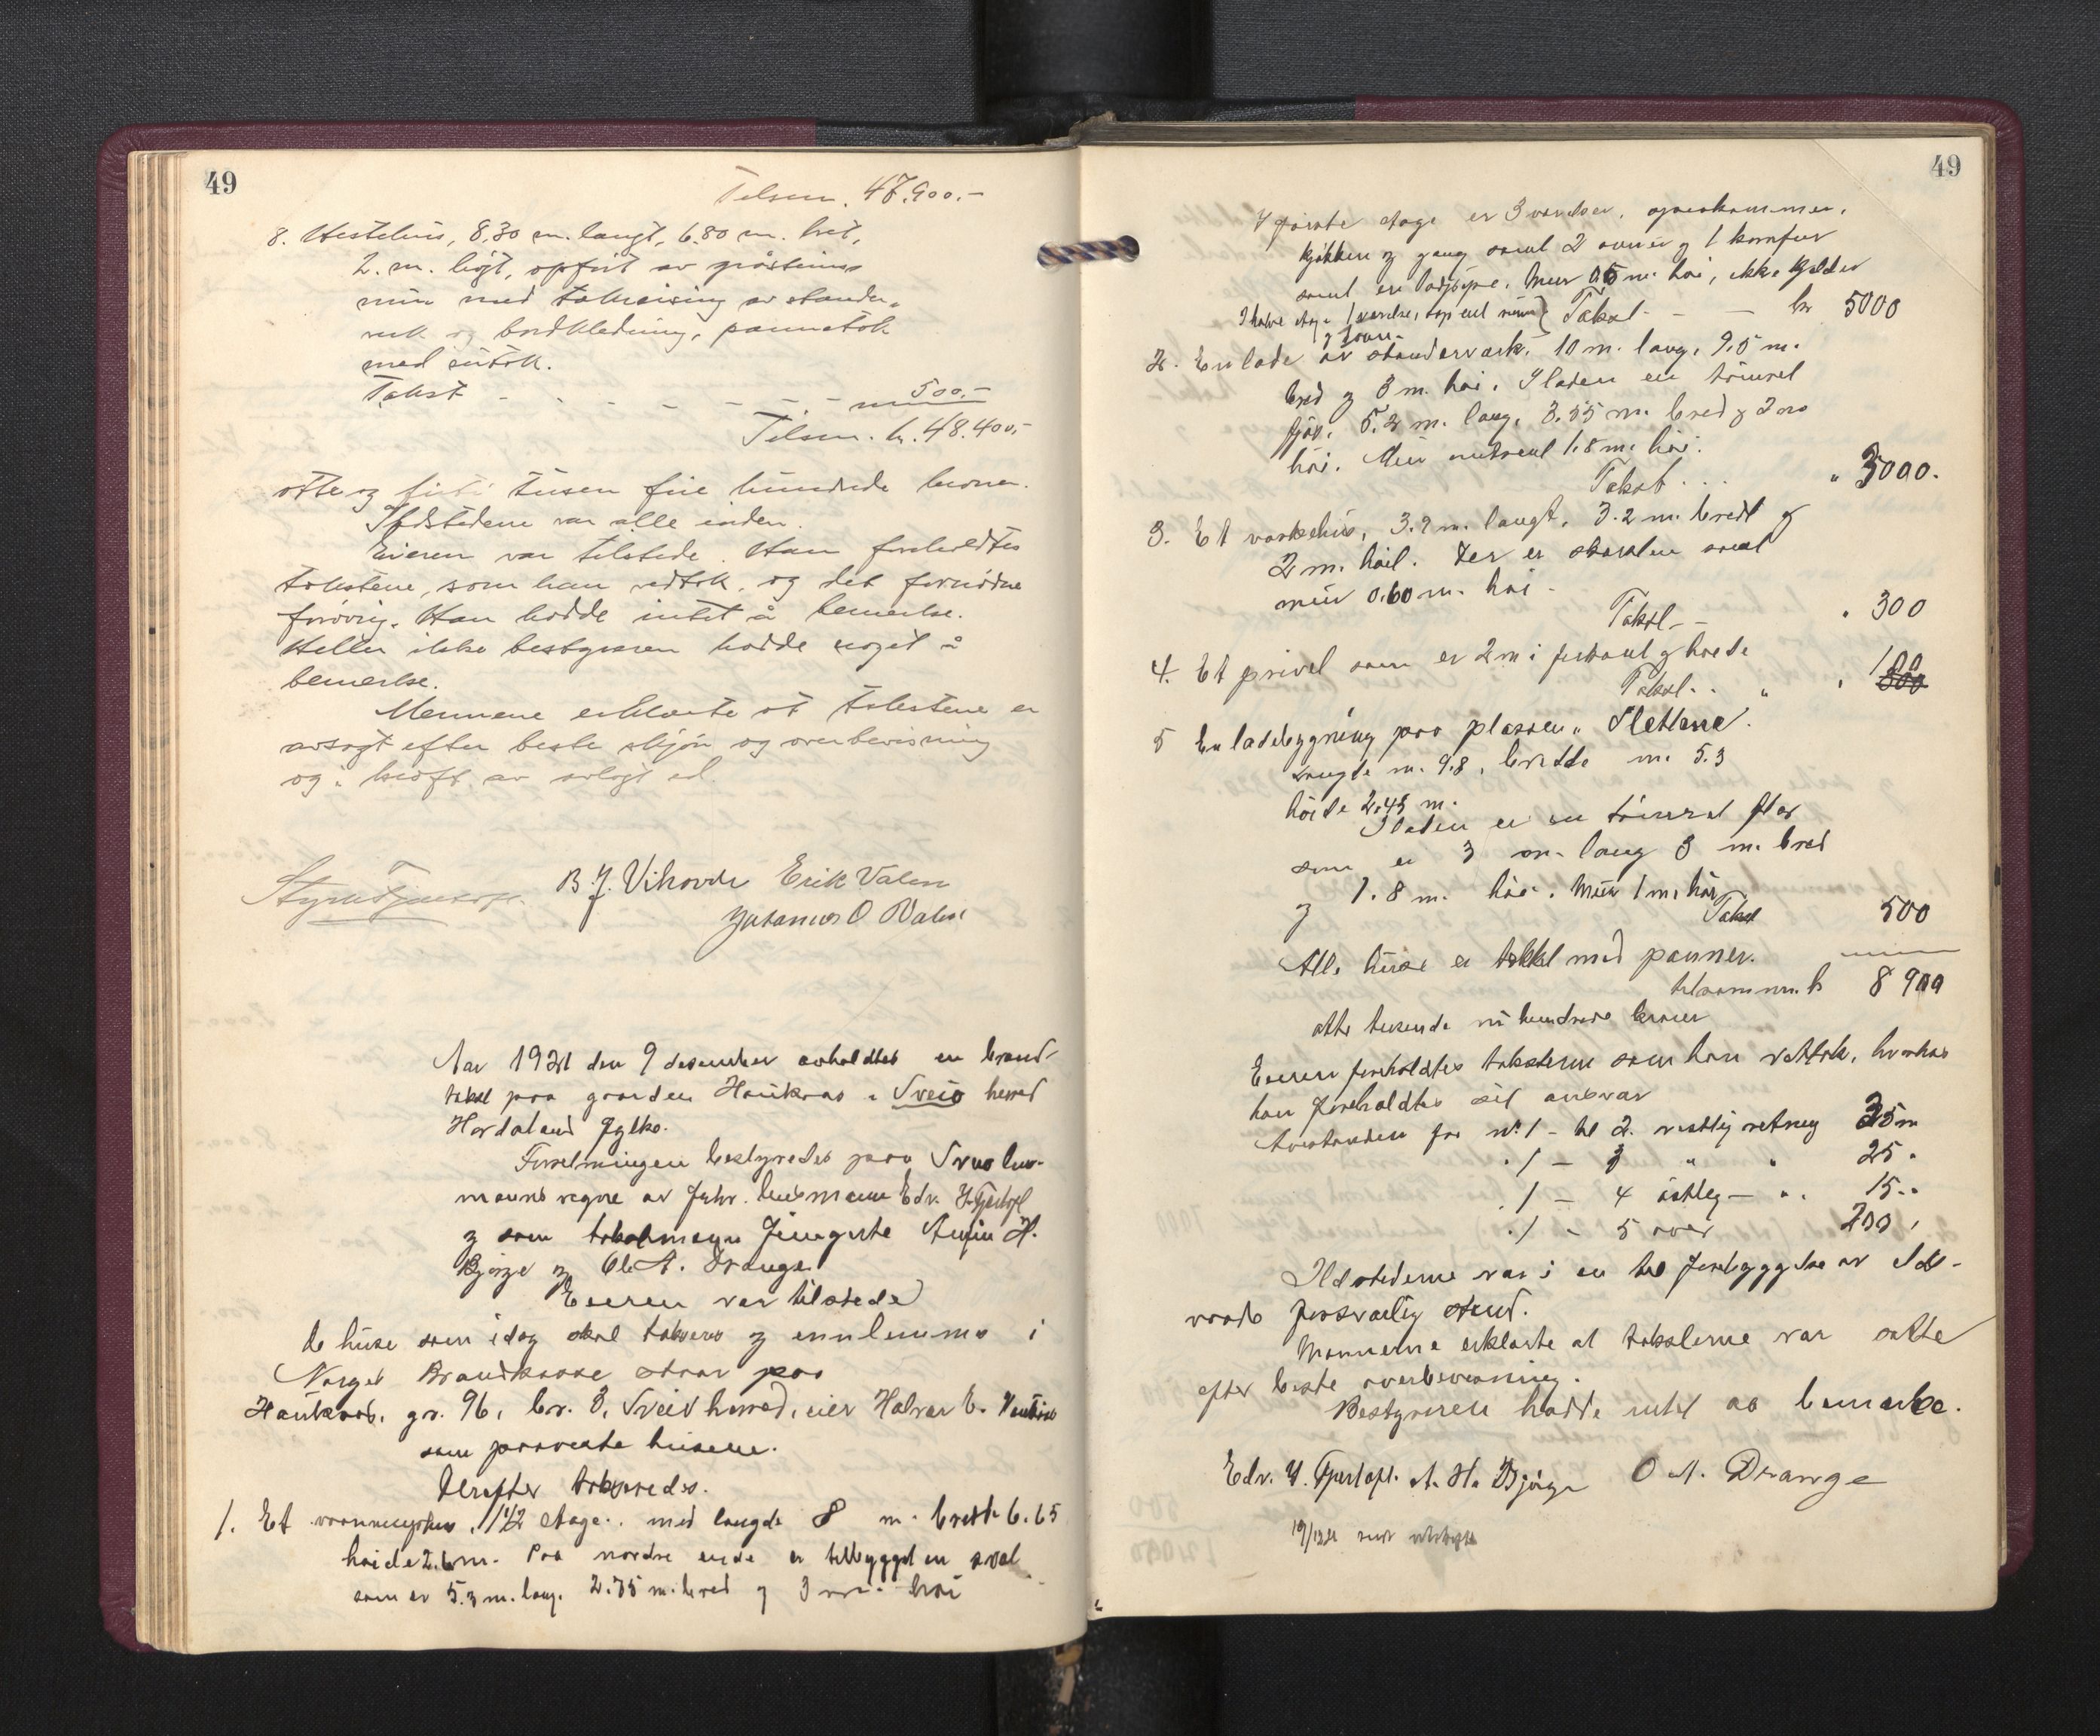 49
Tilsm. 47.900.-
8. Hestehus, 8,30 m. langt, 6,80 m. bret,
2. m. høgt, opført av gråsteins
mur med takreising av stander-
verk og bordkledning, pannetak
med sutak.
Takst - - - - - - - 500.-
Tilsm. kr. 48.400,-
otte og firti tusen fire hundrede kroner.
Ildstedene var alle inden.
Eieren var tilstede. Han foreholdtes
takstene, som han vedtok, og det fornødne
forøvrig. Han hadde intet å bemerke.
Heller ikke bestyreren hadde noget å
bemerke.
Mennene erklærte at takstene er
avsagt efter beste skjøn og overbevisning
og i kraft av avlagt ed.
B. J. Vihovde Erik Valen
O Valen
Aar 1931 den 9 desember avholdtes en brand-
takst paa gaarden Haukaas i Sveio herred
Hordaland fylke.
Forretningen bestyredes paa Sveio lens-
manns vegne av fuhv. lensmann Edv. H. Fjertoft
og som takstmenn fungerte H.
Bjørge og Ole A. Drange.
Eieren var tilstede
De huse som idag skal takseres og innlemmes i
Norges Brandkasse staar paa
Haukaas, gr. 96, br. 3, Sveio herred, eier Halvar
som paaviste husene.
Derefter takseredes.
1. Et vaaningshus, 1 1/2 etage. med længde 8 m. bredde 6.65
høide 2.6 m. Paa nordre ende er tilbygget en sval
som er 5.3 m. lang. 2.75 m. bred og 3 m. høi
49
I første etage er 3 værelser, spiskammer,
kjøkken og gang samt 2 ovner og 1 komfur
samt en Mur 0.5 m. høi, ikke kjelder
I halve etage 1 værelse,
Takst - - kr 5000
2. En lade av standerværk. 10 m. lang, 9.5 m.
bred og 3 m. høi. I laden en tømret
fjøs, 5.2 m. lang, 3.55 m. bred og 2 m
høi. Mur 1.8 m. høi.
Takst . . . " 3000.
3. Et vaskehus, 3.9 m. langt, 3.2 m. bredt og
2 m. høit. Der er skorsten samt
mur 0.60 m. høi -
Takst - - " 300
4. Et privet som er 2 m i firkant og høide
Takst . . " " 100
5 En ladebygning paa plassen "Slettene".
Længde m. 9.8, bredde m. 5.3
høide 2.45 m.
I laden er en tømret flor
som er 3 m. lang 3 m. bred
og 1.8 m. høi. Mur 1 m. høi
Takst 500
Alle huse er tækket med panner.
tilsammen kr 8 900
otte tusende ni hundrede kroner
Eieren foreholdtes taksterne som han vedtok, hvorhos
han foreholdtes sit ansvar
Avstanden fra nr. 1 - til 2. vestlig retning 35 m
" 1 - 3 " " 25 "
" 1 - 4 østleg - " " 15 "
" 1 - 5 over 200 "
Ildstederne var i en til forebyggelse av Ild-
vaade forsvarlig stand.
Mannerne erklærte at taksterne var satte
efter beste overbevisning.
Bestyreren hadde intet aa bemerke.
Edv. H. Fjertoft. A. H. Bjørge O A. Drange